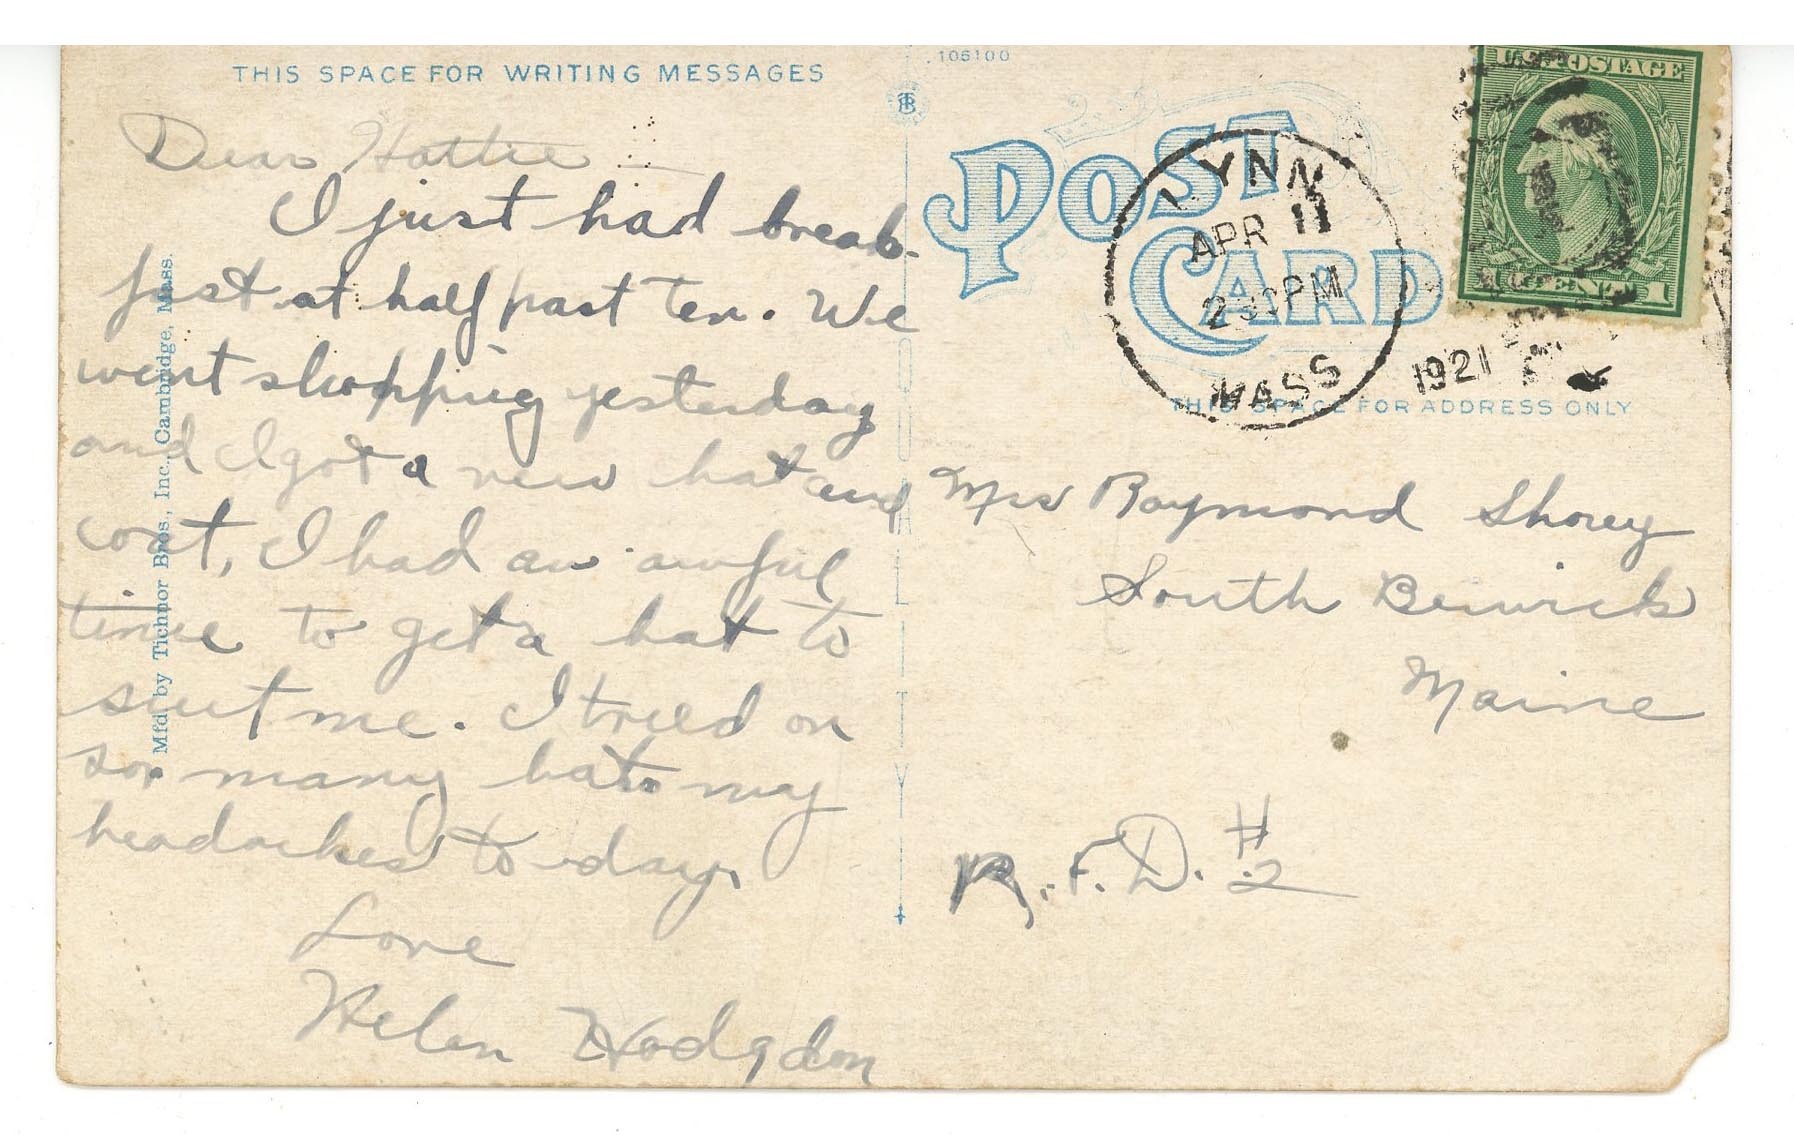 THIS SPACE FOR WRITING MESSAGES
Dear Hattie
I just had break-
fast at half past ten. We
went shopping yesterday
and I got a new hat and
coat, I had an awful
time to get a hat to
suit me. I tried on
so many hats my
headaches to-day.
Love
Helen Hodgdon
Mfd by Tichnor Bros., Inc., Cambridge, Mass.
QUALITY
106100
POST
CARD
LYNN
APR 11
2 30 PM
1921
MASS
U.S. POSTAGE
1 CENT 1
THIS SPACE FOR ADDRESS ONLY
Mrs Raymond Shorey
South Berwick
Maine
R.F.D. #2